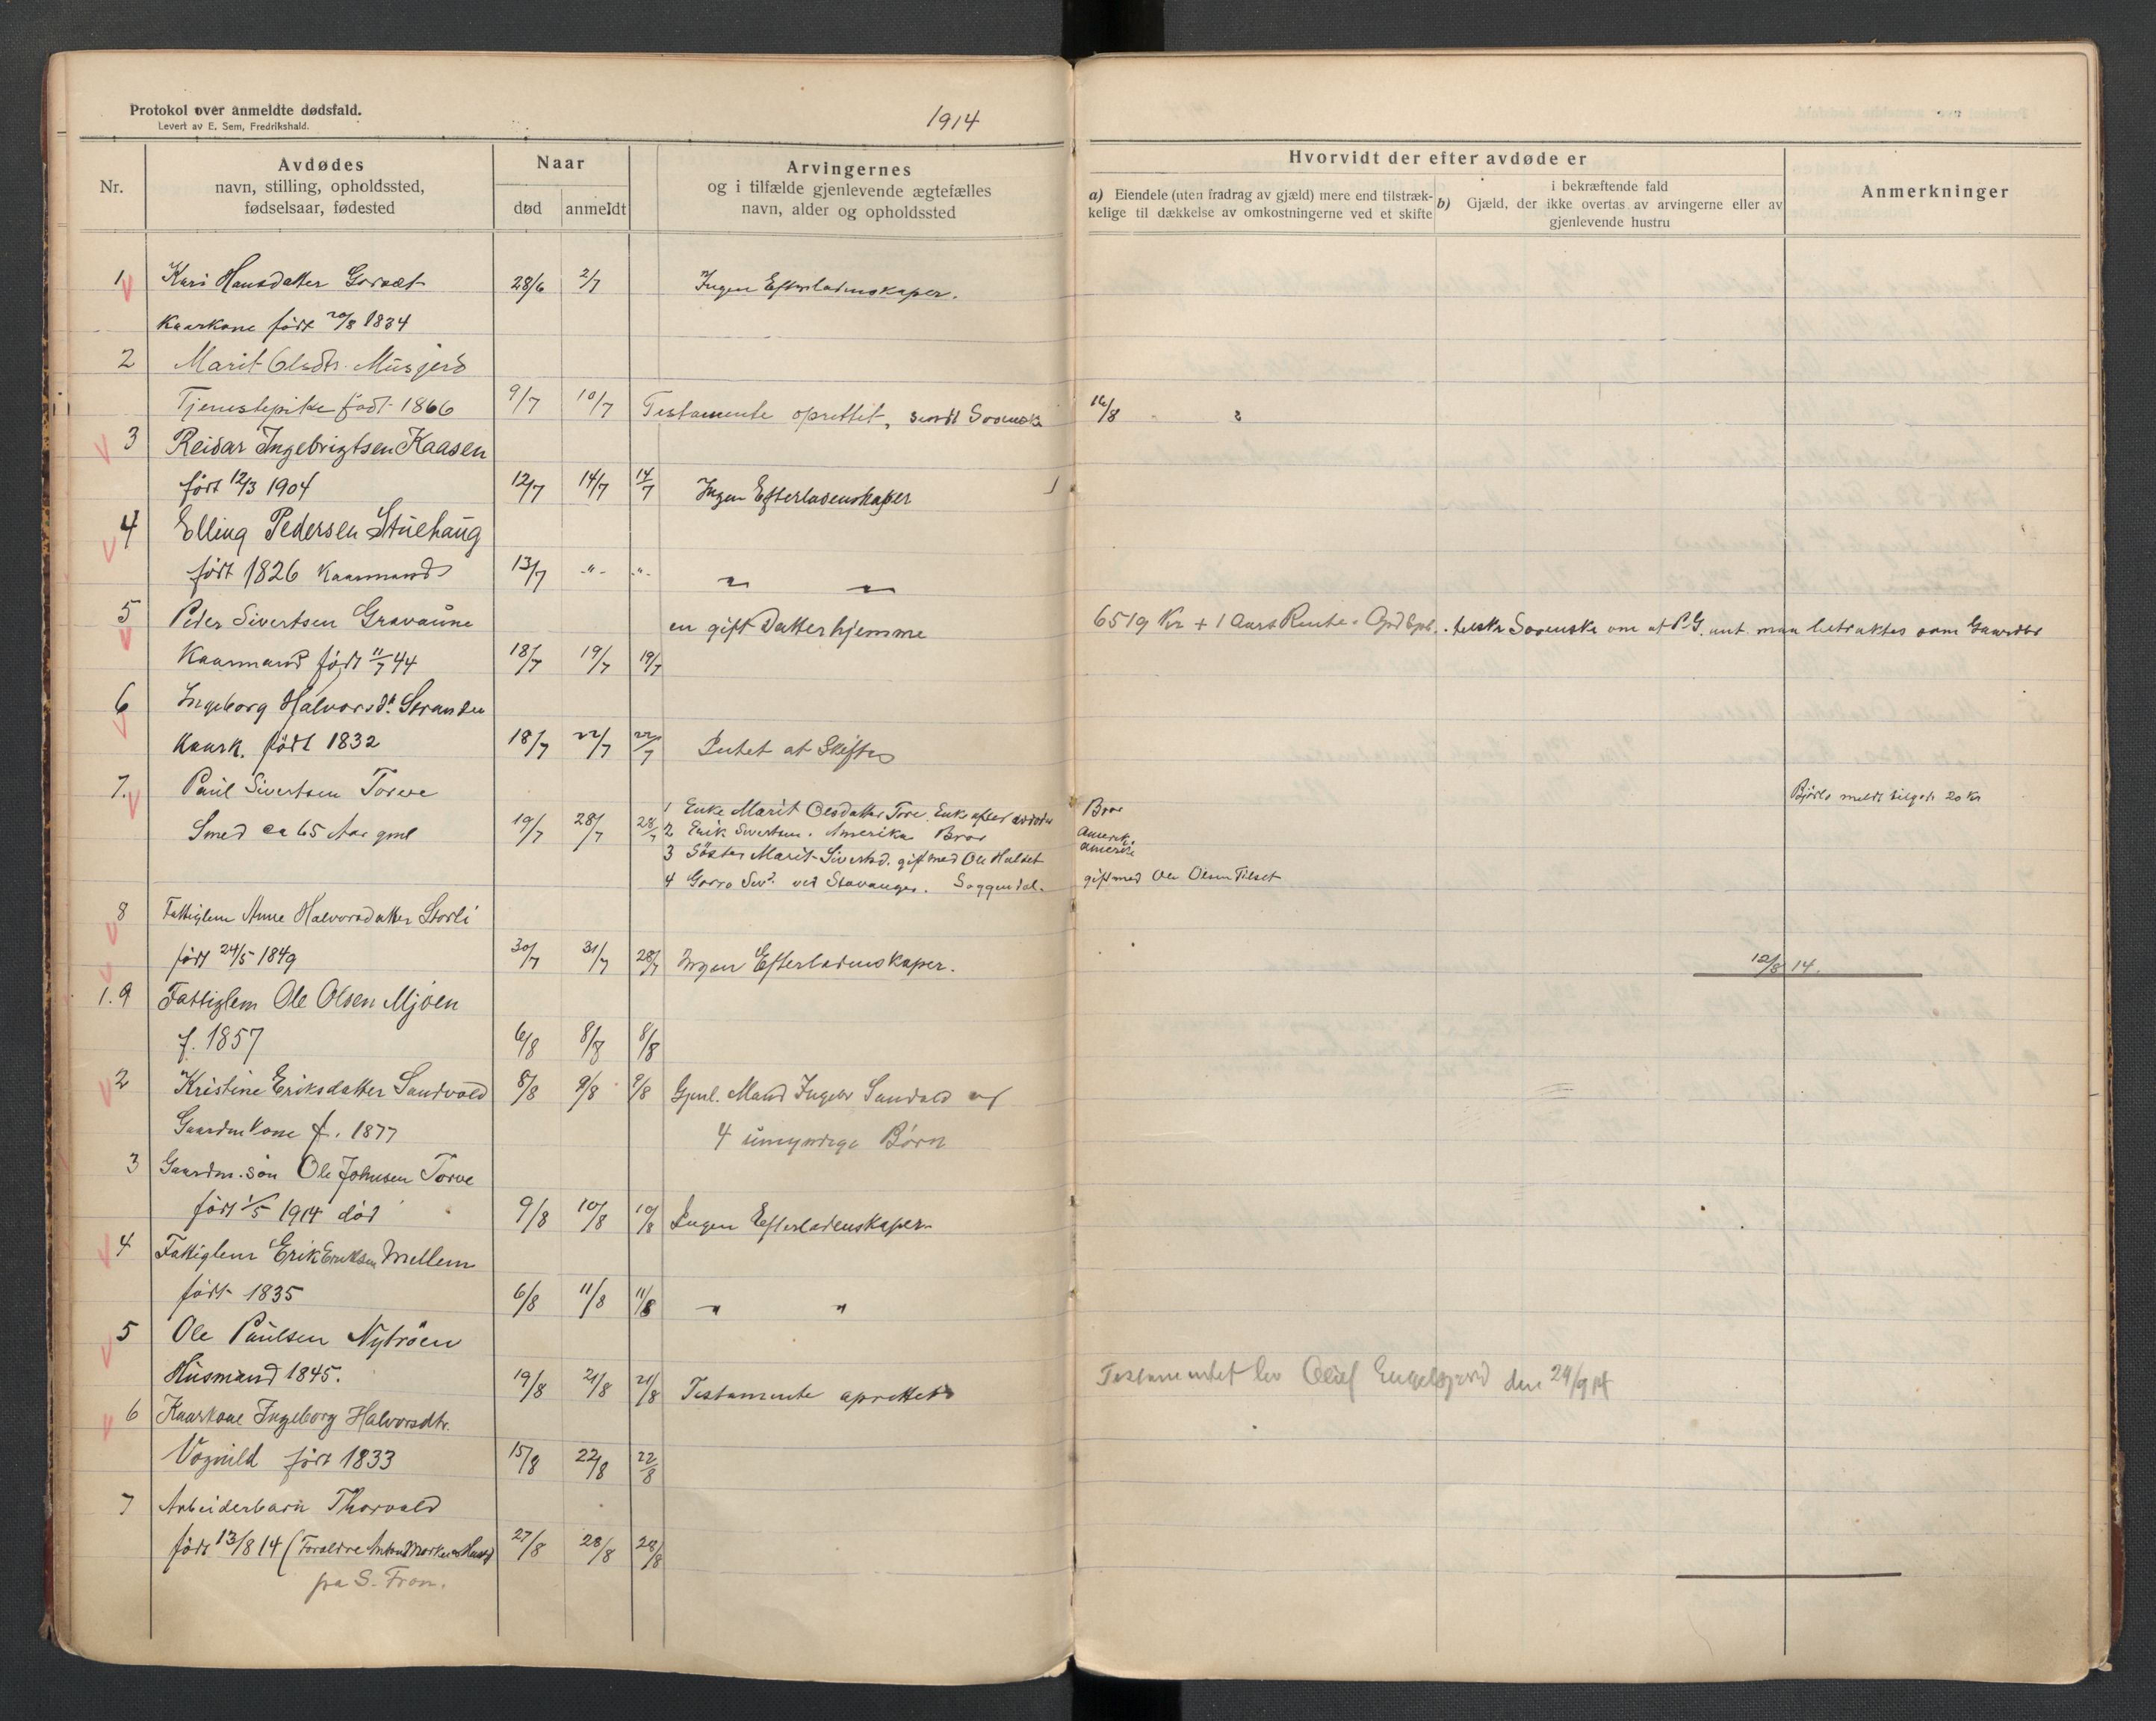 Protokol over anmeldte dødsfald.
Levert av E. Sem, Fredrikshald.
1914
Nr.
Avdødes
navn, stilling, opholdssted,
fødselsaar, fødested
Naar
død anmeldt
Arvingernes
og i tilfælde gjenlevende ægtefælles
navn, alder og opholdssted
Hvorvidt der efter avdøde er
a) Eiendele (uten fradrag av gjæld) mere end tilstræk-
kelige til dækkelse av omkostningerne ved et skifte
i bekræftende fald
b) Gjæld, der ikke overtas av arvingerne eller av
gjenlevende hustru
Anmerkninger
1 Kari Hansdatter Gorsæt 28/6 2/7 Ingen Efterladenskaper.
Kaarkone født 20/8 1834
2 Marit Olsdtr. Musgjerd
Tjenestepike født 1866 9/7 10/7 Testamente oprettet, sendt Sorensk 16/8
3 Reidar Ingebrigtsen Kaasen
født 12/3 1904 12/7 14/7 14/7 Ingen Efterladenskaper
4 Elling Pedersen Stuehaug
født 1826 Kaarmand 13/7 -"- -"- " "
5 Peder Sivertsen Gravaune en gift Datter hjemme 6519 Kr + 1 Aars Rente
Kaarmand født 11/7 44 18/7 19/7 19/7
6 Ingeborg Halvorsdt. Stranden
Kaark. født 1832 18/7 22/7 22/7 Intet at Skifte
7. Paul Sivertsen Torve
Smed ca 65 Aar gml 19/7 28/7 28/7
1 Enke Marit Olsdatter Tore. Enke efter avdøde
2 Erik Sivertsen. Amerika Bror
3 Søster Marit Sivertsd. gift med Ole Halset
4 Gorro ved Stavanger. Soggendal.
Bror
Amerik
Amerika
gift med Ole Olsen Tilset
meldt 20 Kr
8 Fattiglem Anne Halvorsdatter Storli
født 24/5 1849 30/7 31/7 28/7 Ingen Efterladenskaper.
12/8 14.
1.9 Fattiglem Ole Olsen Mjøen
f. 1857 6/8 8/8 8/8
2 Kristine Eriksdatter Sandvold 8/8 9/8 9/8 Gjenl. Mand Ingebr Sandvold og
Gaardmkone f. 1877 4 umyndige Børn
3 Gaardm. søn Ole Johnsen Torve
født 1/5 1914 død 9/8 10/8 10/8 Ingen Efterladenskaper
4 Fattiglem Erik Eriksen Mellem
født 1835 6/8 11/8 11/8 " "
5 Ole Paulsen Nytrøen
Husmand 1845. 19/8 21/8 21/8 Testamente oprettet
Testamentet lev Oluf Engelsjord den 29/9 14
6 Kaarkone Ingeborg Halvorsdtr.
Vognild født 1833 15/8 22/8 22/8
7 Arbeiderbarn Thorvald
født 13/8 14 (Forældre Anton 27/8 28/8 28/8
fra S. Fron.